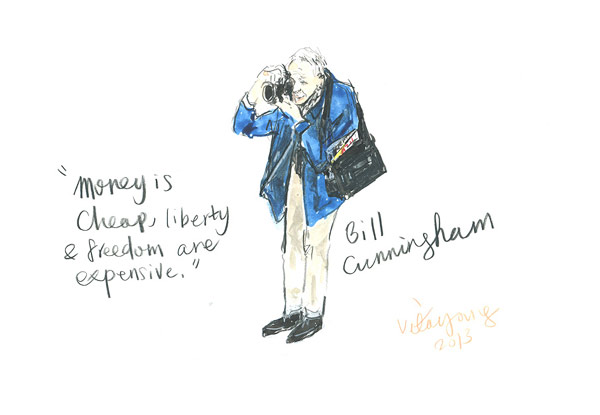 "Money is
cheap, liberty
& freedom are
expensive."
Bill
Cunningham
2013